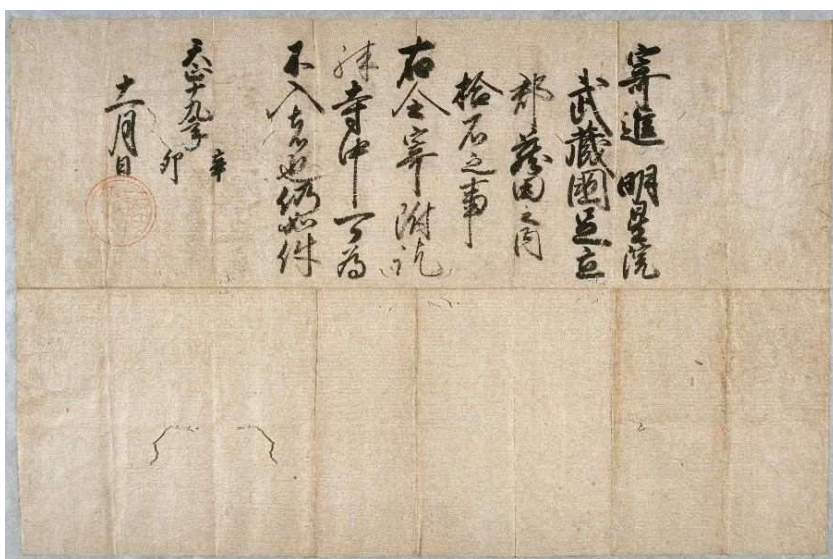 寄進 明星院
武藏國足立
郡蔵田之内
拾石之事
右令寄附訖
殊寺中可為
不入者也仍如件
天正十九年辛卯
十一月日